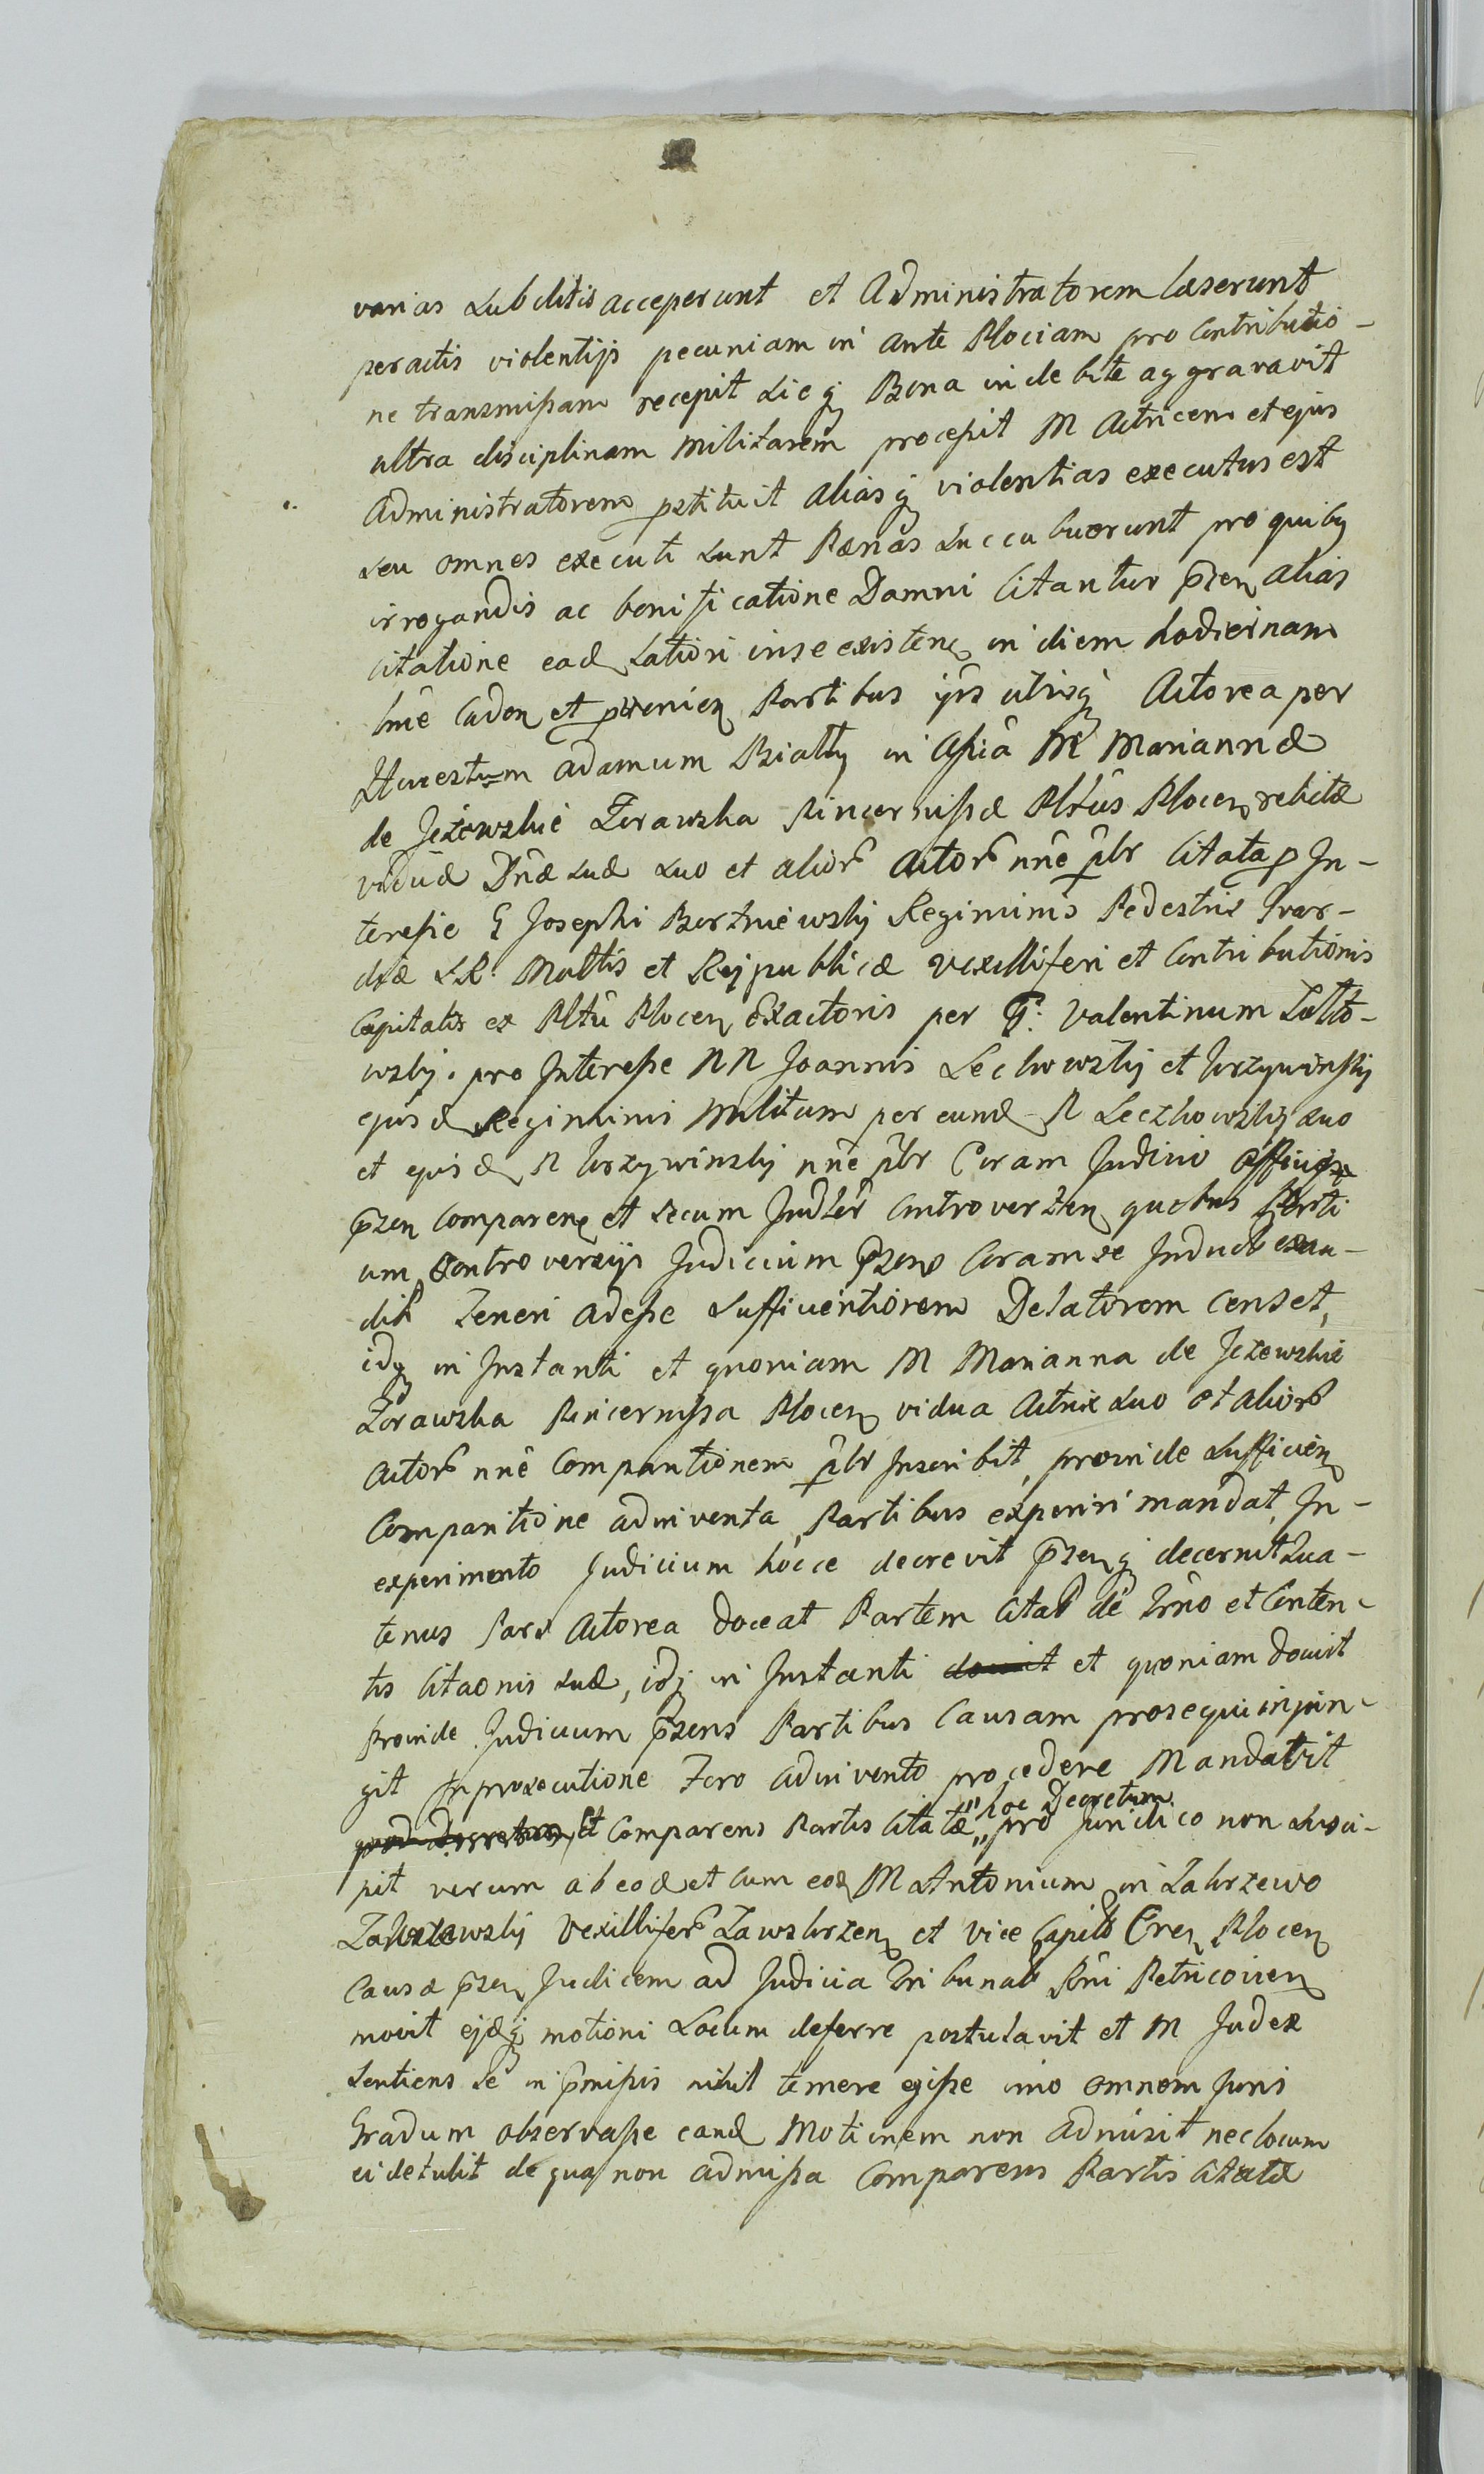 varias subditis acceperunt et Administratorem laeserunt
peractis violentijs pecuniam in ante Plociam pro Contributio-
ne transmissam recepit sicq Bona indebite aggravavit
ultra disciplinam militarem processit M Actricem et ejus
Administratorem pstituit aliasq violentias executus est
seu omnes executi sunt Paenas succubuerunt pro quibus
irrogandis ac bonificatione Damni Citantur pzen alias
Citatione ead latiori in se existen in diem hodiernam
hne Caden et pvenien Partibus ijs utrisq Actorea per
Honestum Adamum Bialky in Assia M Mariannae
de Jeżewskie Żorawska Pincernissae Pltus Plocen relictae
viduae Dnae suae suo et alior Actor nne plr Citata p In-
teresse G Josephi Bortniewskij Regiminis Pedestris Gvar-
diae S.R. Mattis et Reipublicae Vexilliferi et Contributionis
Capitalis ex Pltu Plocen Exactoris per G: Valentinum Zolto-
wskij. pro Interesse NN Joannis Lechowskij et Krzywinskij
ejusd Regiminis Militum per eund N Leczkowskij suo
et ejusd N Krzywinskij nne plr Coram Judicio Officioq
pzen Comparen et secum Judler Controverten quibus Parti
um Controversijs Judicium pzens Coram se Induct exau-
dit Teneri adesse sufficientiorem Delatorem Censet,
idq in Instanti et quoniam M Marianna de Jeżewskie
Żorawska Pincernissa Plocen vidua Actrix suo et alior
Actor nne Comparitionem plr Inscribit, proinde sufficien
Comparitione adinventa Partibus experiri mandat, In-
experimento Judicium hocce decrevit pzenq decernit Qua-
tenus Pars Actorea doceat Partem Citat de Trno et Conten-
tis Citaonis suae, idq in Instanti docuit et quoniam docuit
proinde Judicium pzens Partibus Causam prosequi injun-
git In prosecutione Foro adinvento procedere Mandavit
quod Decretum Et Comparens Partis Citatae "hoc Decretum" pro Juridico non susci-
pit verum ab eod et cum eod M Antonium in Zakrzewo
Zakrzewskij Vexillifer Zawskrzen et Vice Capit Gren Plocen
Causae pzen Judicem ad Judicia Tribunal Rni Petricovien
movit ejdq motioni Locum deferre postulavit et M Judex
sentiens se in pmissis nihil temere egisse imo omnem Juris
Gradum observasse eand Motionem non admisit nec locum
ei detulit de qua non admissa Comparens Partis Citatae